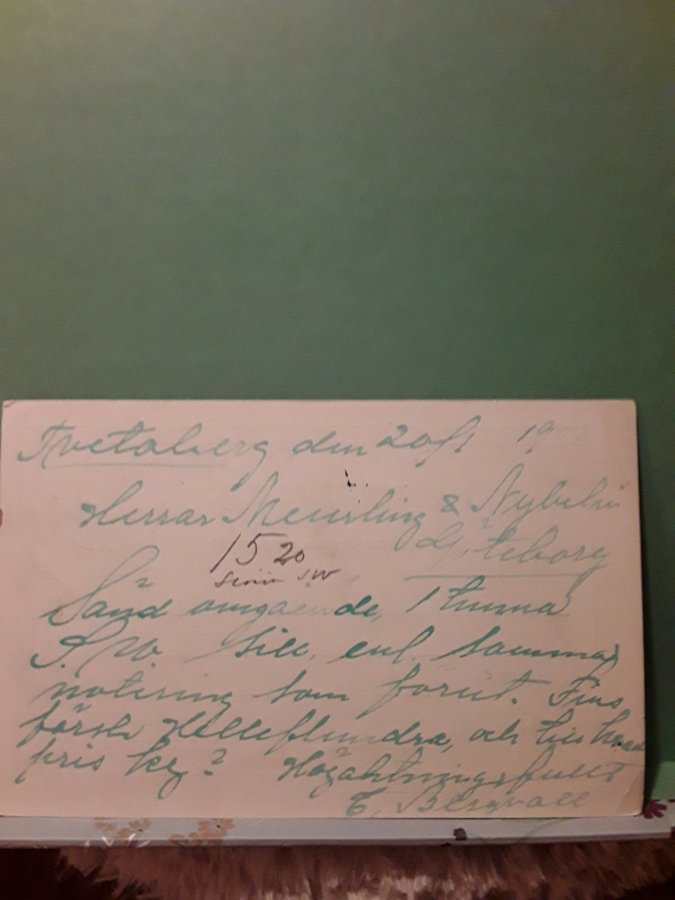 Tvetaberg den 20/1 19
Herrar Meurling & Nybelin
Göteborg
15 20
Sänd omgående, 1 tunna
S. W. Sill, enl. samma
notering som förut. Fins
färsk Helleflundra, och till
pris kg? Högaktningsfullt
E. Bergvall